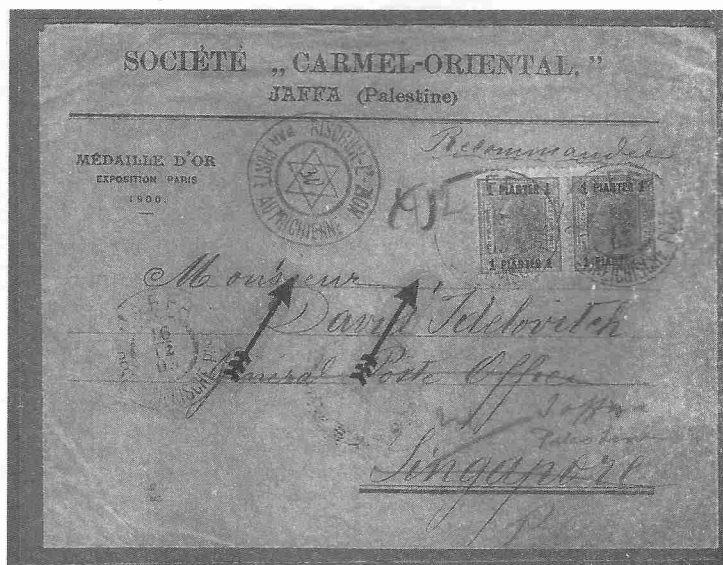 SOCIÉTÉ „CARMEL-ORIENTAL,”
JAFFA (Palestine)
MÉDAILLE D'OR
EXPOSITION PARIS
1900.
RISCHON-Z. ZION PAR POSTE AUTRICHIENNE
Recommandée
1 PIASTER 1
1 PIASTER 1
1 PIASTER 1
1 PIASTER 1
Monsieur
David Idelovitch
Général Poste Office
16
2
Jaffa
Palestine
Singapore